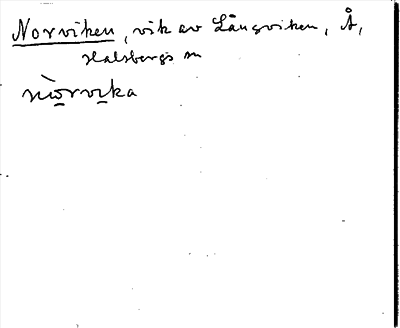 Norviken, vik av Långviken, Å,
Halsbergs sn
nòrvika